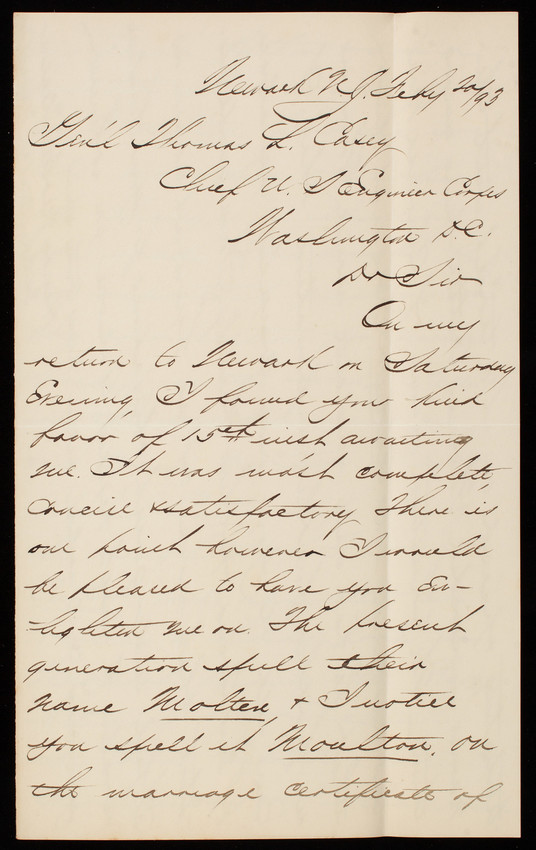 Newark N.J. Feby 20/93
Gen'l Thomas L. Casey
Chief U. S Engineer Corps
Washington D.C.
Dr Sir
On my
return to Newark on Saturday
Evening, I found your kind
favor of 15th inst awaiting
me. It was most complete,
concise & satisfactory. There is
one point however I would
be pleased to have you En-
lighten me on. The present
generation spell their
name Molten, & I notice
you spell it Moulton, on
the marriage certificate of